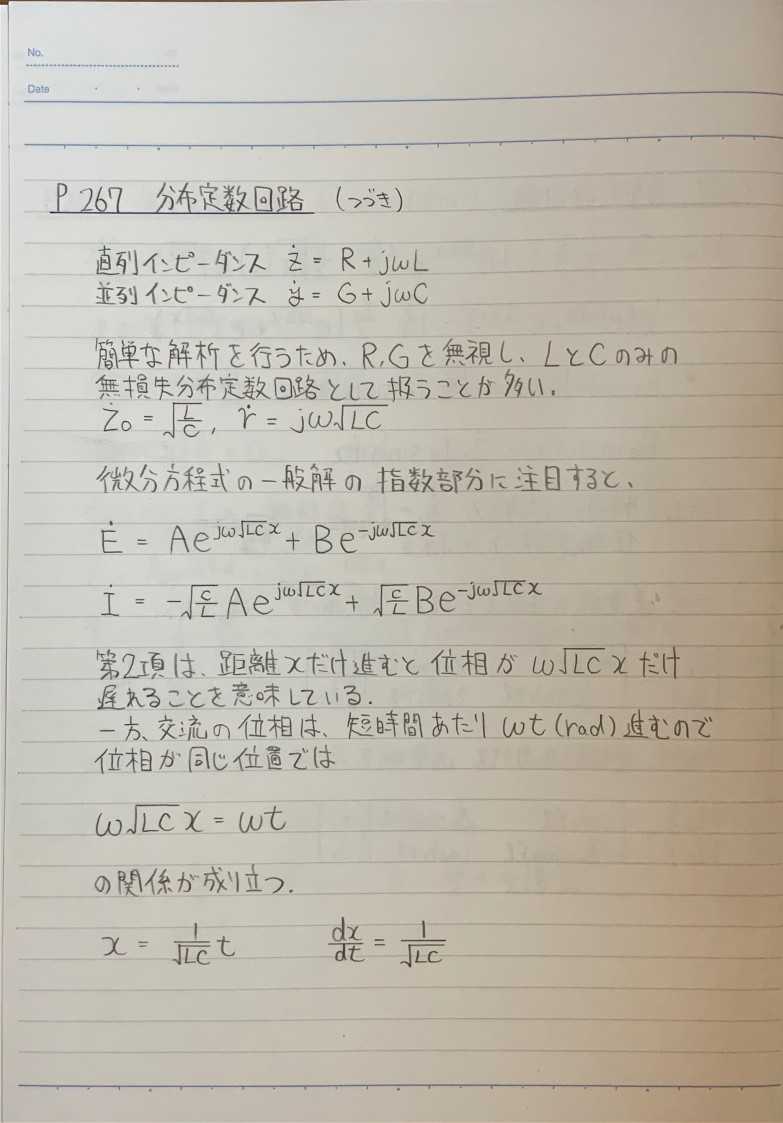 No.
Date
P 267 分布定数回路 (つづき)
直列インピーダンス Ż = R + jωL
並列インピーダンス ẏ = G + jωC
簡単な解析を行うため、R, Gを無視し、LとCのみの
無損失分布定数回路として扱うことが多い。
Ż₀ = √(L/C), ṙ = jω√LC
微分方程式の一般解の指数部分に注目すると、
Ė = Ae^{jω√LC x} + Be^{-jω√LC x}
İ = -√(C/L) Ae^{jω√LC x} + √(C/L) Be^{-jω√LC x}
第2項は、距離xだけ進むと位相がω√LC xだけ
遅れることを意味している.
一方、交流の位相は、短時間あたりωt (rad) 進むので
位相が同じ位置では
ω√LC x = ωt
の関係が成り立つ.
x = 1/√LC t dx/dt = 1/√LC